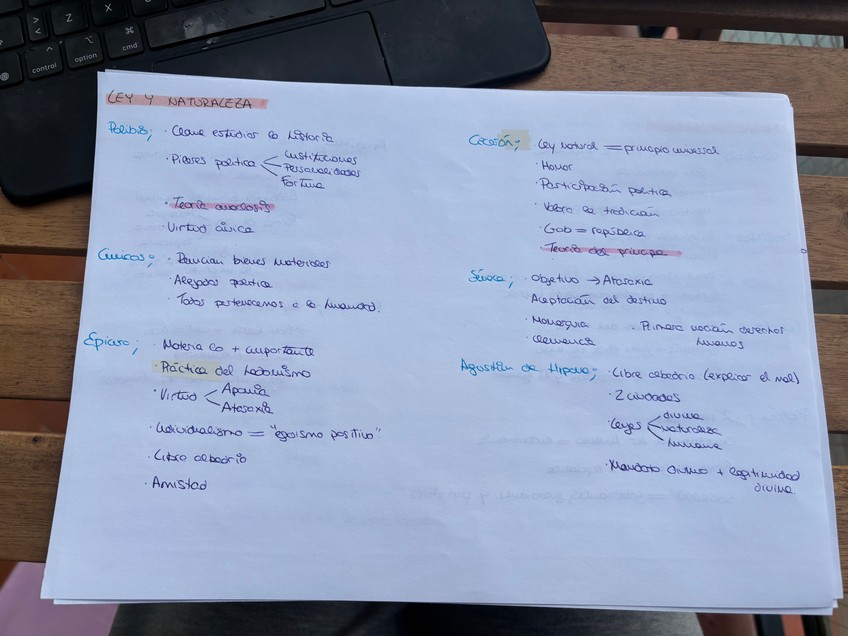 LEY Y NATURALEZA
Polibio;
· Clave estudios la historia
· Pilares política
Instituciones
Personalidades
Fortuna
· Teoría anaciclosis
· Virtud cívica
Cínicos;
· Renuncian bienes materiales
· Alejados política
· Todos pertenecemos a la humanidad.
Epicuro;
· Materia lo + importante
· Práctica del hedonismo
· Virtud
Aponía
Ataraxia
· Individualismo = "egoísmo positivo"
· Libre albedrío
· Amistad
Cicerón;
Ley natural = principio universal
· Honor
· Participación política
· Valora la tradición
· Gob = república
· Teoría del príncipe
Séneca;
· Objetivo → Ataraxia
Aceptación del destino
· Monarquía
· Clemencia
· Primera noción derechos
humanos
Agustín de Hipona;
· Libre albedrío (explicar el mal)
· 2 ciudades
· Leyes
divina
naturaleza
humana
· Mandato divino + legitimidad
divina
control
option
cmd
Z
X